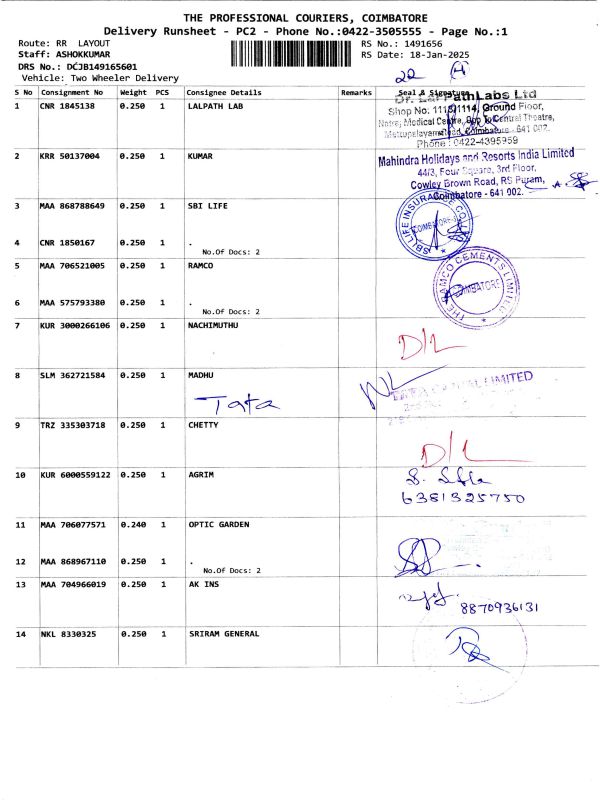 THE PROFESSIONAL COURIERS, COIMBATORE
Delivery Runsheet - PC2 - Phone No.:0422-3505555 - Page No.:1
Route: RR LAYOUT RS No.: 1491656
Staff: ASHOKKUMAR RS Date: 18-Jan-2025
DRS No.: DCJB149165601
Vehicle: Two Wheeler Delivery 22
S No Consignment No Weight PCS Consignee Details Remarks Seal & Signature
1 CNR 1845138 0.250 1 LALPATH LAB
Dr. Lal PathLabs Ltd
Ground Floor,
Central Theatre,
Coimbatore - 641 002.
Phone : 0422-4395959
2 KRR 50137004 0.250 1 KUMAR
Mahindra Holidays and Resorts India Limited
44/3, Four Square, 3rd Floor,
Cowley Brown Road, RS Puram,
Coimbatore - 641 002.
3 MAA 868788649 0.250 1 SBI LIFE
SBI LIFE INSURANCE CO. 
COIMBATORE
4 CNR 1850167 0.250 1 .
No.Of Docs: 2
5 MAA 706521005 0.250 1 RAMCO
THE RAMCO CEMENTS LIMITED
COIMBATORE
6 MAA 575793380 0.250 1 .
No.Of Docs: 2
7 KUR 3000266106 0.250 1 NACHIMUTHU
D/L
8 SLM 362721584 0.250 1 MADHU
Tata
LIMITED
9 TRZ 335303718 0.250 1 CHETTY
D/L
10 KUR 6000559122 0.250 1 AGRIM
6381325750
11 MAA 706077571 0.240 1 OPTIC GARDEN
12 MAA 868967110 0.250 1 .
No.Of Docs: 2
13 MAA 704966019 0.250 1 AK INS
8870936131
14 NKL 8330325 0.250 1 SRIRAM GENERAL